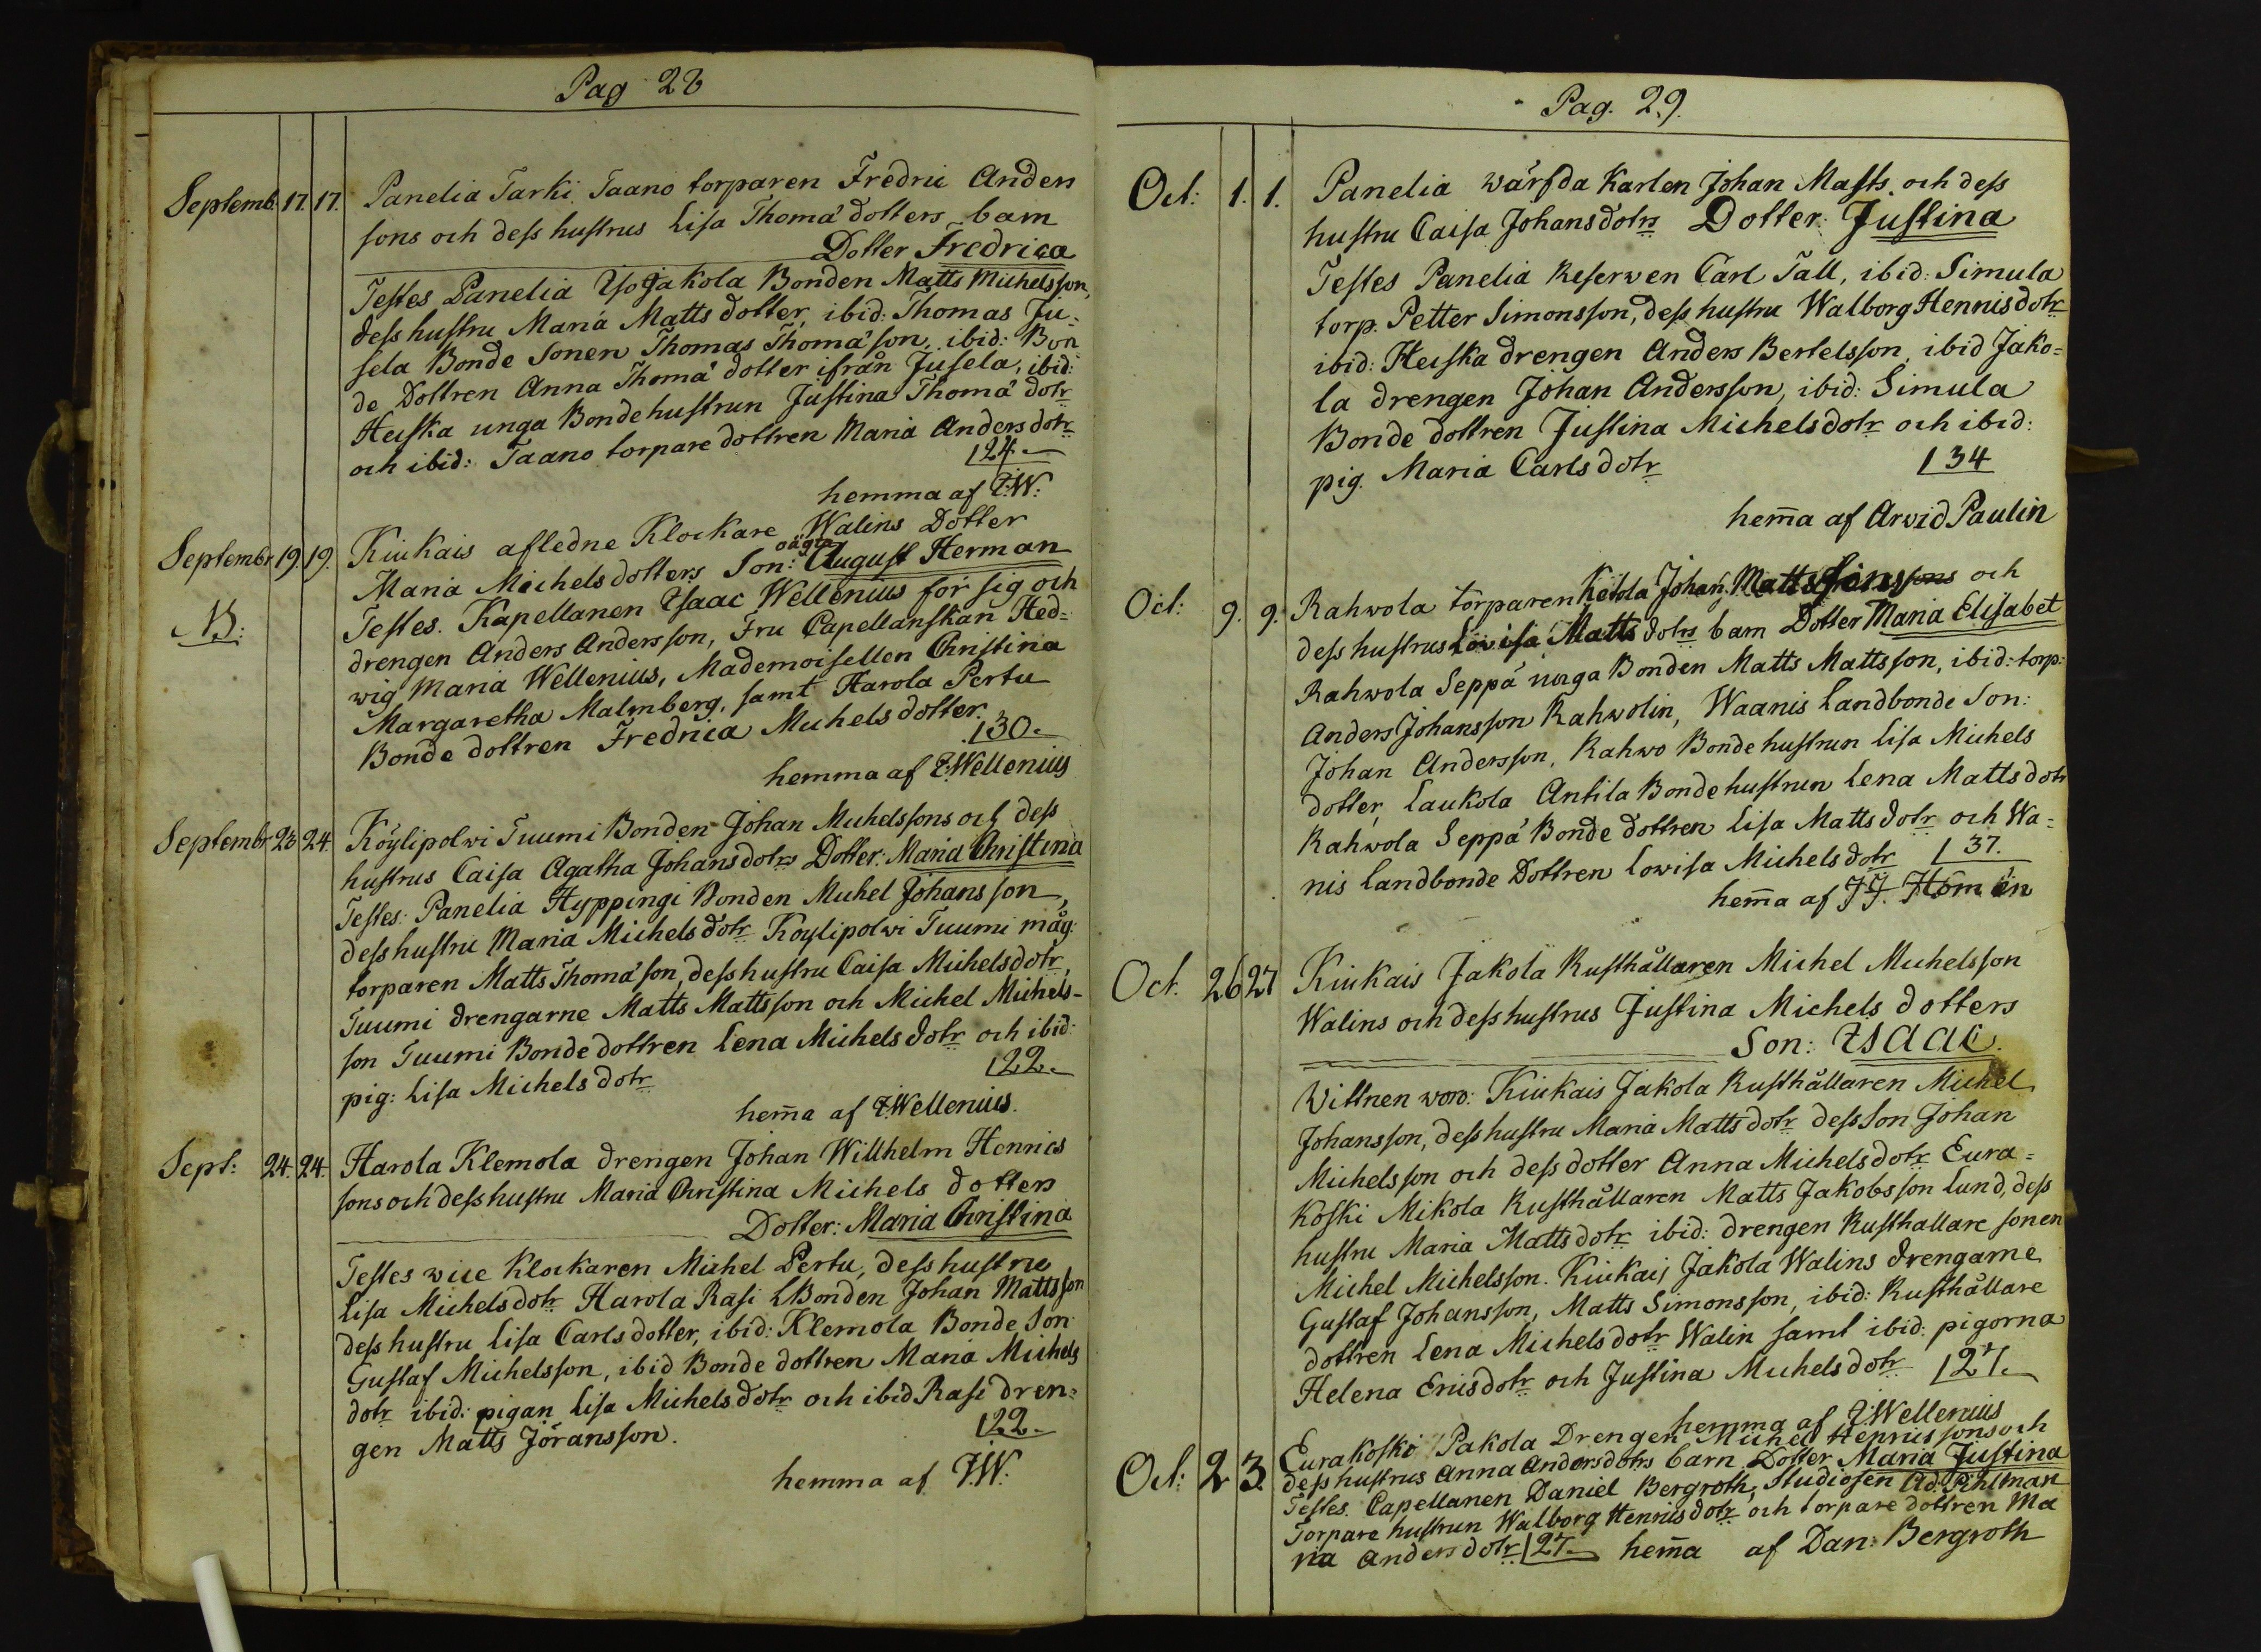 Pag 28
Septemb. 17. 17. Panelia Tarki Taano torparen Fredric Anders
sons och dess hustrus Lisa Thomä dotters barn
Dotter Fredrica
Testes Panelia Iso Jakola Bonden Matts Michelsson,
dess hustru Maria Matts dotter, ibid: Thomas Ju-
sela Bonde Sonen Thomas Thomä son, ibid: Bon
de Dottren Anna Thomä dotter ifrån Jusela, ibid:
Heiska unga Bondehustrun Justina Thomä dotr
och ibid: Taano torpare dottren Maria Anders dotr
124.
hemma af I:W:
Septembr 19. 19. Kiukais afledne Klockare Walins Dotter
oägta
Maria Michels dotters Son: August Herman
NB: Testes. Kapellanen Isaac Wellenius för sig och
drengen Anders Andersson, Fru Capellanskan Hed-
wig Maria Wellenius, Mademoisellen Christina
Margaretha Malmberg, samt Harola Pertu
Bonde dottren Fredrica Michels dotter.
130.
hemma af I:Wellenius
Septembr 23 24. Köylipolwi Tuumi Bonden Johan Michelssons och dess
hustrus Caisa Agatha Johans dotrs Dotter: Maria Christina
Testes: Panelia Hyppingi Bonden Michel Johansson,
dess hustru Maria Michels dotr Köylipolwi Tuumi måg:
torparen Matts Thomä son, dess hustru Caisa Michels dotr,
Tuumi drengarne Matts Mattsson och Michel Michels-
son Tuumi Bonde dottren Lena Michels dotr och ibid:
pig: Lisa Michels dotr
122.
hem̄a af I:Wellenius.
Sept: 24. 24. Harola Klemola drengen Johan Willhelm Henrics
sons och dess hustru Maria Christina Michels dotters
Dotter: Maria Christina
Testes wice Klockaren Michel Pertu, dess hustru
Lisa Michels dotr Harola Rasi LBonden Johan Mattsson
dess hustru Lisa Carls dotter, ibid: Klemola Bonde Son
Gustaf Michelsson, ibid Bonde dottren Maria Michels
dotr ibid: pigan Lisa Michels dotr och ibid Rasi dren-
gen Matts Jöransson.
122.
hemma af I:W:
Pag. 29.
Oct: 1. 1. Panelia wärfda Karlen Johan Matts. och dess
hustru Caisa Johans dotrs Dotter: Justina
Testes Panelia Reserwen Carl Tall, ibid: Simula
torp. Petter Simonsson, dess hustru Walborg Hennis dotr
ibid: Heiska drengen Anders Bertelsson, ibid Jako-
la drengen Johan Andersson, ibid: Simula
Bonde dottren Justina Michels dotr och ibid:
pig. Maria Carls dotr
134
hem̄a af Arvid Paulin
Oct: 9. 9. Rahwola torparen Ketola Johan Matts sons och
dess hustrus Lovisa Matts dotrs barn Dotter Maria Elisabet
Rahwola Seppä unga Bonden Matts Mattsson, ibid: torp:
Anders Johansson Rahwolin, Waanis Landbonde Son:
Johan Andersson, Rahwo Bonde hustrun Lisa Michels
dotter, Laukola Antila Bonde hustrun Lena Matts dotr
Rahwola Seppä Bonde dottren Lisa Matts dotr och Wa-
nis Landbonde Dottren Lowisa Michels dotr 137.
hem̄a af JJ. Homén
Oct. 26 27 Kiukais Jakola Rusthållaren Michel Michelsson
Walins och dess hustrus Justina Michels dotters
Son: Isaac.
Wittnen woro: Kiukais Jakola Rusthållaren Michel
Johansson, dess hustru Maria Matts dotr dess Son Johan
Michelsson och dess dotter Anna Michels dotr Eura-
koski Mikola Rusthållaren Matts Jakobsson Lund, dess
hustru Maria Matts dotr ibid: drengen Rusthållare sonen
Michel Michelsson. Kiukais Jakola Walins drengarne
Gustaf Johansson, Matts Simonsson, ibid: Rusthållare
dottren Lena Michels dotr Walin samt ibid: pigorna
Helena Erics dotr och Justina Michels dotr 127.
hemma af I:Wellenius
Oct: 2 3. Eurakoski Pakola Drengen Michel Henricssons och
dess hustrus Anna Anders dotrs barn Dotter Maria Justina
Testes. Capellanen Daniel Bergroth, Studiosen Ad: Pihlman
Torpare hustrun Walborg Hennis dotr och torpare dottren Ma
ria Anders dotr 127. hem̄a af Dan: Bergroth